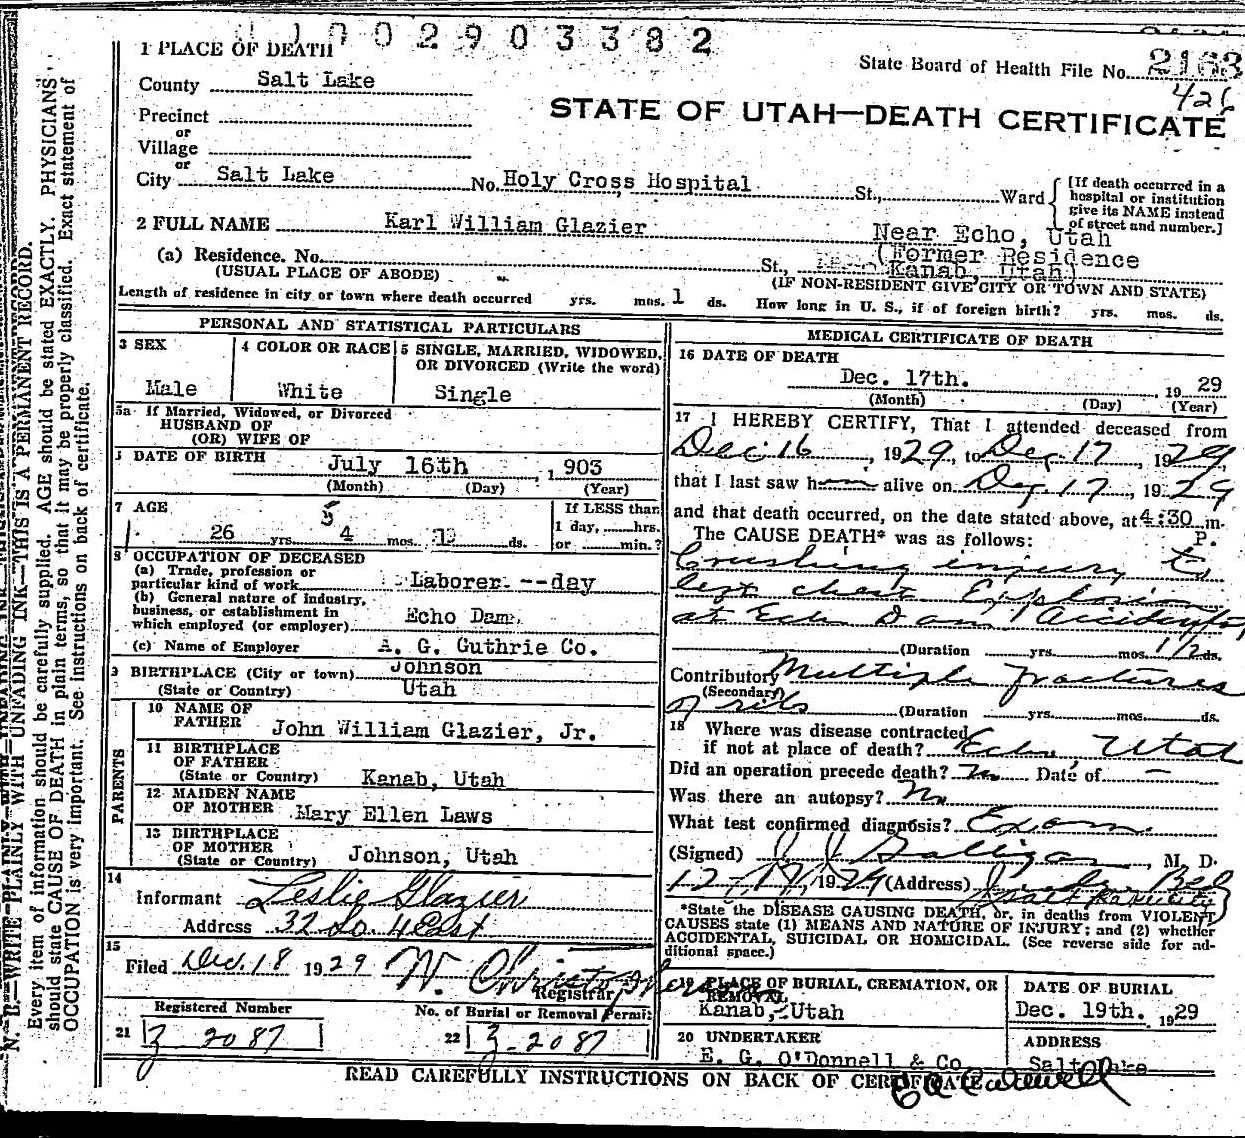 1002903382
1 PLACE OF DEATH
State Board of Health File No. 2163
426
County Salt Lake
STATE OF UTAH—DEATH CERTIFICATE
Precinct
or
Village
or
City Salt Lake No. Holy Cross Hospital St., Ward [If death occurred in a hospital or institution give its NAME instead of street and number.]
2 FULL NAME Karl William Glazier
Near Echo, Utah
(a) Residence. No. St., (Former Residence
Kanab, Utah)
(USUAL PLACE OF ABODE) (IF NON-RESIDENT GIVE CITY OR TOWN AND STATE)
Length of residence in city or town where death occurred yrs. mos. 1 ds. How long in U. S., if of foreign birth? yrs. mos. ds.
PERSONAL AND STATISTICAL PARTICULARS
3 SEX
Male
4 COLOR OR RACE
White
5 SINGLE, MARRIED, WIDOWED,
OR DIVORCED (Write the word)
Single
5a If Married, Widowed, or Divorced
HUSBAND OF
(OR) WIFE OF
DATE OF BIRTH July 16th , 1903
(Month) (Day) (Year)
7 AGE
5
26 yrs. 4 mos. 1 ds.
If LESS than
1 day, hrs.
or min.?
8 OCCUPATION OF DECEASED
(a) Trade, profession or
particular kind of work Laborer --day
(b) General nature of industry,
business, or establishment in
which employed (or employer) Echo Dam.
(c) Name of Employer A. G. Guthrie Co.
9 BIRTHPLACE (City or town) Johnson
(State or Country) Utah
PARENTS
10 NAME OF
FATHER John William Glazier, Jr.
11 BIRTHPLACE
OF FATHER
(State or Country) Kanab, Utah
12 MAIDEN NAME
OF MOTHER Mary Ellen Laws
13 BIRTHPLACE
OF MOTHER
(State or Country) Johnson, Utah
14
Informant Leslie Glazier
Address 32 So. 4 East
15
Filed Dec. 18 1929 W. Christopherson
Registrar
Registered Number
21 Z-2087
No. of Burial or Removal Permit
22 Z-2087
MEDICAL CERTIFICATE OF DEATH
16 DATE OF DEATH
Dec. 17th. 19 29
(Month) (Day) (Year)
17 I HEREBY CERTIFY, That I attended deceased from
Dec. 16, 1929, to Dec. 17, 1929,
that I last saw him alive on Dec. 17, 1929
and that death occurred, on the date stated above, at 4:30 m.
P.
The CAUSE DEATH* was as follows:
Crushing injury to
left chest Explosion
at Echo Dam Accidental
(Duration yrs. mos. 1/2 ds.
Contributory Multiple fractures
(Secondary)
of ribs (Duration yrs. mos. ds.
18 Where was disease contracted
if not at place of death? Echo, Utah
Did an operation precede death? No Date of —
Was there an autopsy? No
What test confirmed diagnosis? Exam.
(Signed) J. J. Galligan, M. D.
12-17, 1929 (Address)
Salt Lake City
*State the DISEASE CAUSING DEATH, or, in deaths from VIOLENT
CAUSES state (1) MEANS AND NATURE OF INJURY; and (2) whether
ACCIDENTAL, SUICIDAL OR HOMICIDAL. (See reverse side for ad-
ditional space.)
19 PLACE OF BURIAL, CREMATION, OR
REMOVAL
Kanab, Utah
DATE OF BURIAL
Dec. 19th. 1929
20 UNDERTAKER
E. G. O'Donnell & Co
ADDRESS
Salt Lake
READ CAREFULLY INSTRUCTIONS ON BACK OF CERTIFICATE
N. B.—WRITE PLAINLY WITH UNFADING INK—THIS IS A PERMANENT RECORD.
Every item of information should be carefully supplied. AGE should be stated EXACTLY. PHYSICIANS
should state CAUSE OF DEATH in plain terms, so that it may be properly classified. Exact statement of
OCCUPATION is very important. See instructions on back of certificate.